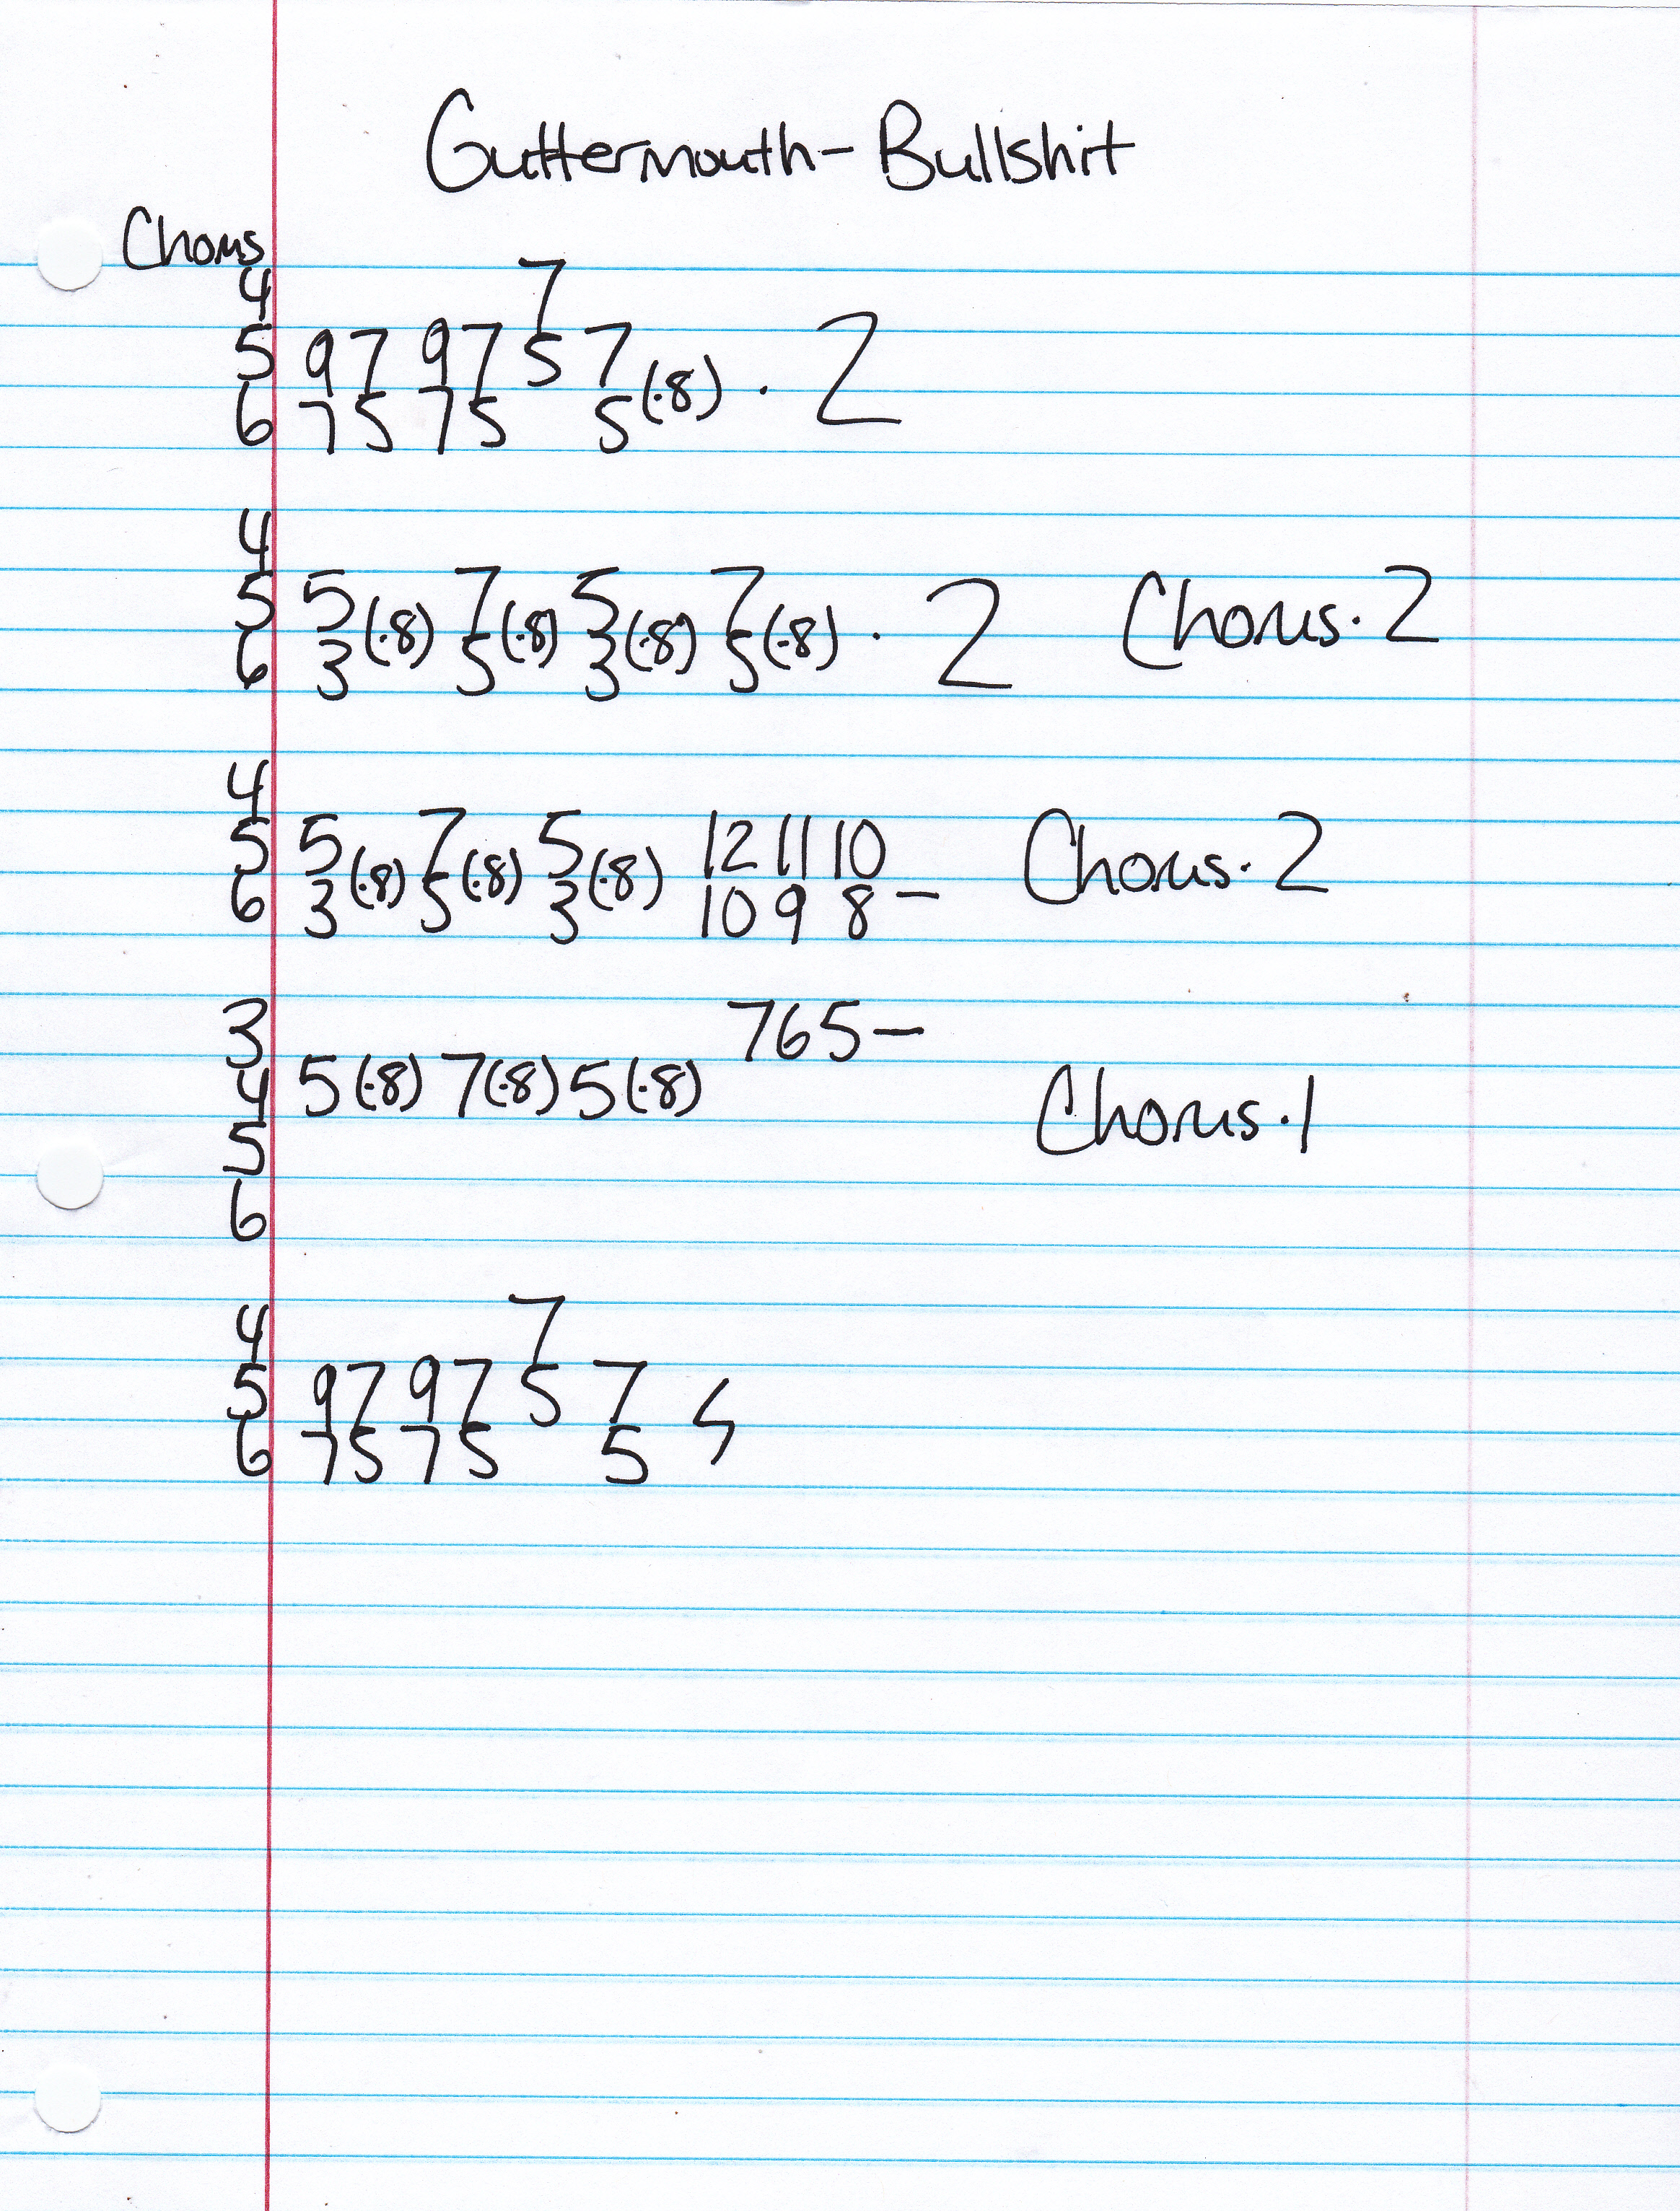 Guttermouth - Bullshit
Chorus
4 7
5 9 7 9 7 5 7
6 7 5 7 5 5 (·8) · 2
4
5 5 7 5 7
6 3 (·8) 5 (·8) 3 (·8) 5 (·8) · 2 Chorus · 2
4
5 5 7 5 12 11 10
6 3 (·8) 5 (·8) 3 (·8) 10 9 8 — Chorus · 2
3 7 6 5 —
4 5 (·8) 7 (·8) 5 (·8) Chorus · 1
5
6
4 7
5 9 7 9 7 5 7
6 7 5 7 5 5